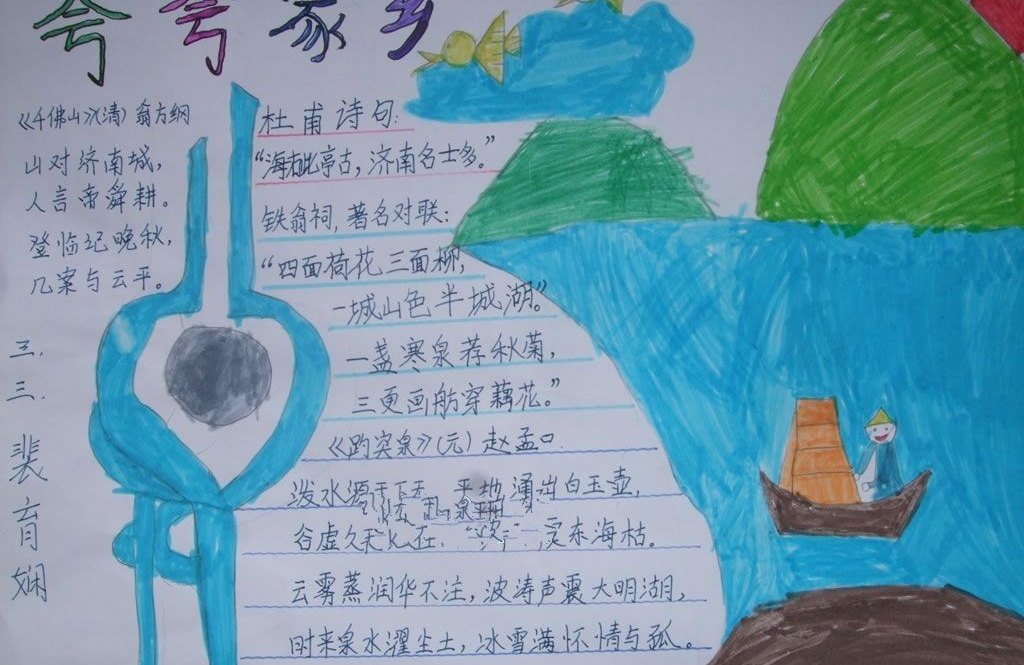 夸夸家乡
《千佛山》(清)翁方纲
山对济南城，
人言帝舜耕。
登临纪晚秋，
几案与云平。
三.三.裴育娴
杜甫诗句：
“海右此亭古，济南名士多。”
铁翁祠，著名对联：
“四面荷花三面柳，
一城山色半城湖。”
一盏寒泉荐秋菊，
三更画舫穿藕花。”
《趵突泉》(元)赵孟口.
泼水源天下无，平地涌出白玉壶，
谷虚久
东海枯。
云雾蒸润华不注，波涛声震大明湖，
时来泉水濯尘土，冰雪满怀情与孤。